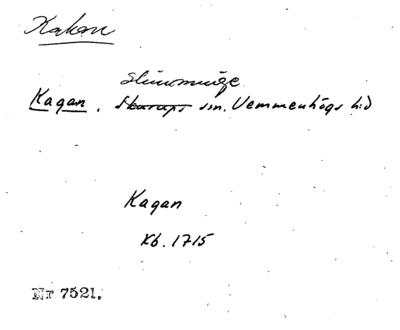 Kakan
Slimminge
Kagan. Skurups sn. Vemmenhögs hd
Kagan
Kb. 1715
Nr 7521.